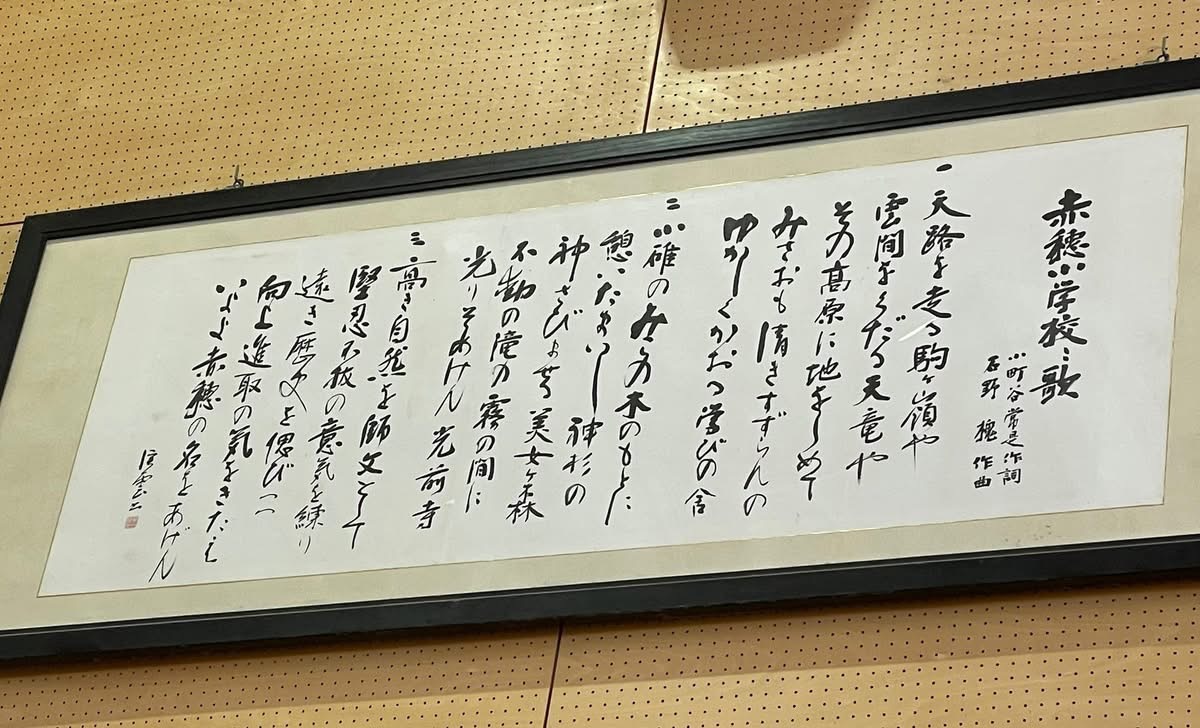 赤穂小学校々歌
小町谷常是作詞
石野槐作曲
一 天路を走る駒ヶ嶺や
雲間をくだる天竜や
その高原に地をしめて
みさおも清きすずらんの
ゆかしくかおる学びの舎
二 小碓のみこの木のもとに
憩いたまいし神杉の
神さびよする美女ヶ森
不動の滝の霧の間に
光りそめけん光前寺
三 高き自然を師父として
堅忍不抜の意気を練り
遠き歴史を偲びつつ
向上進取の気をきたえ
いよよ赤穂の名をあげん